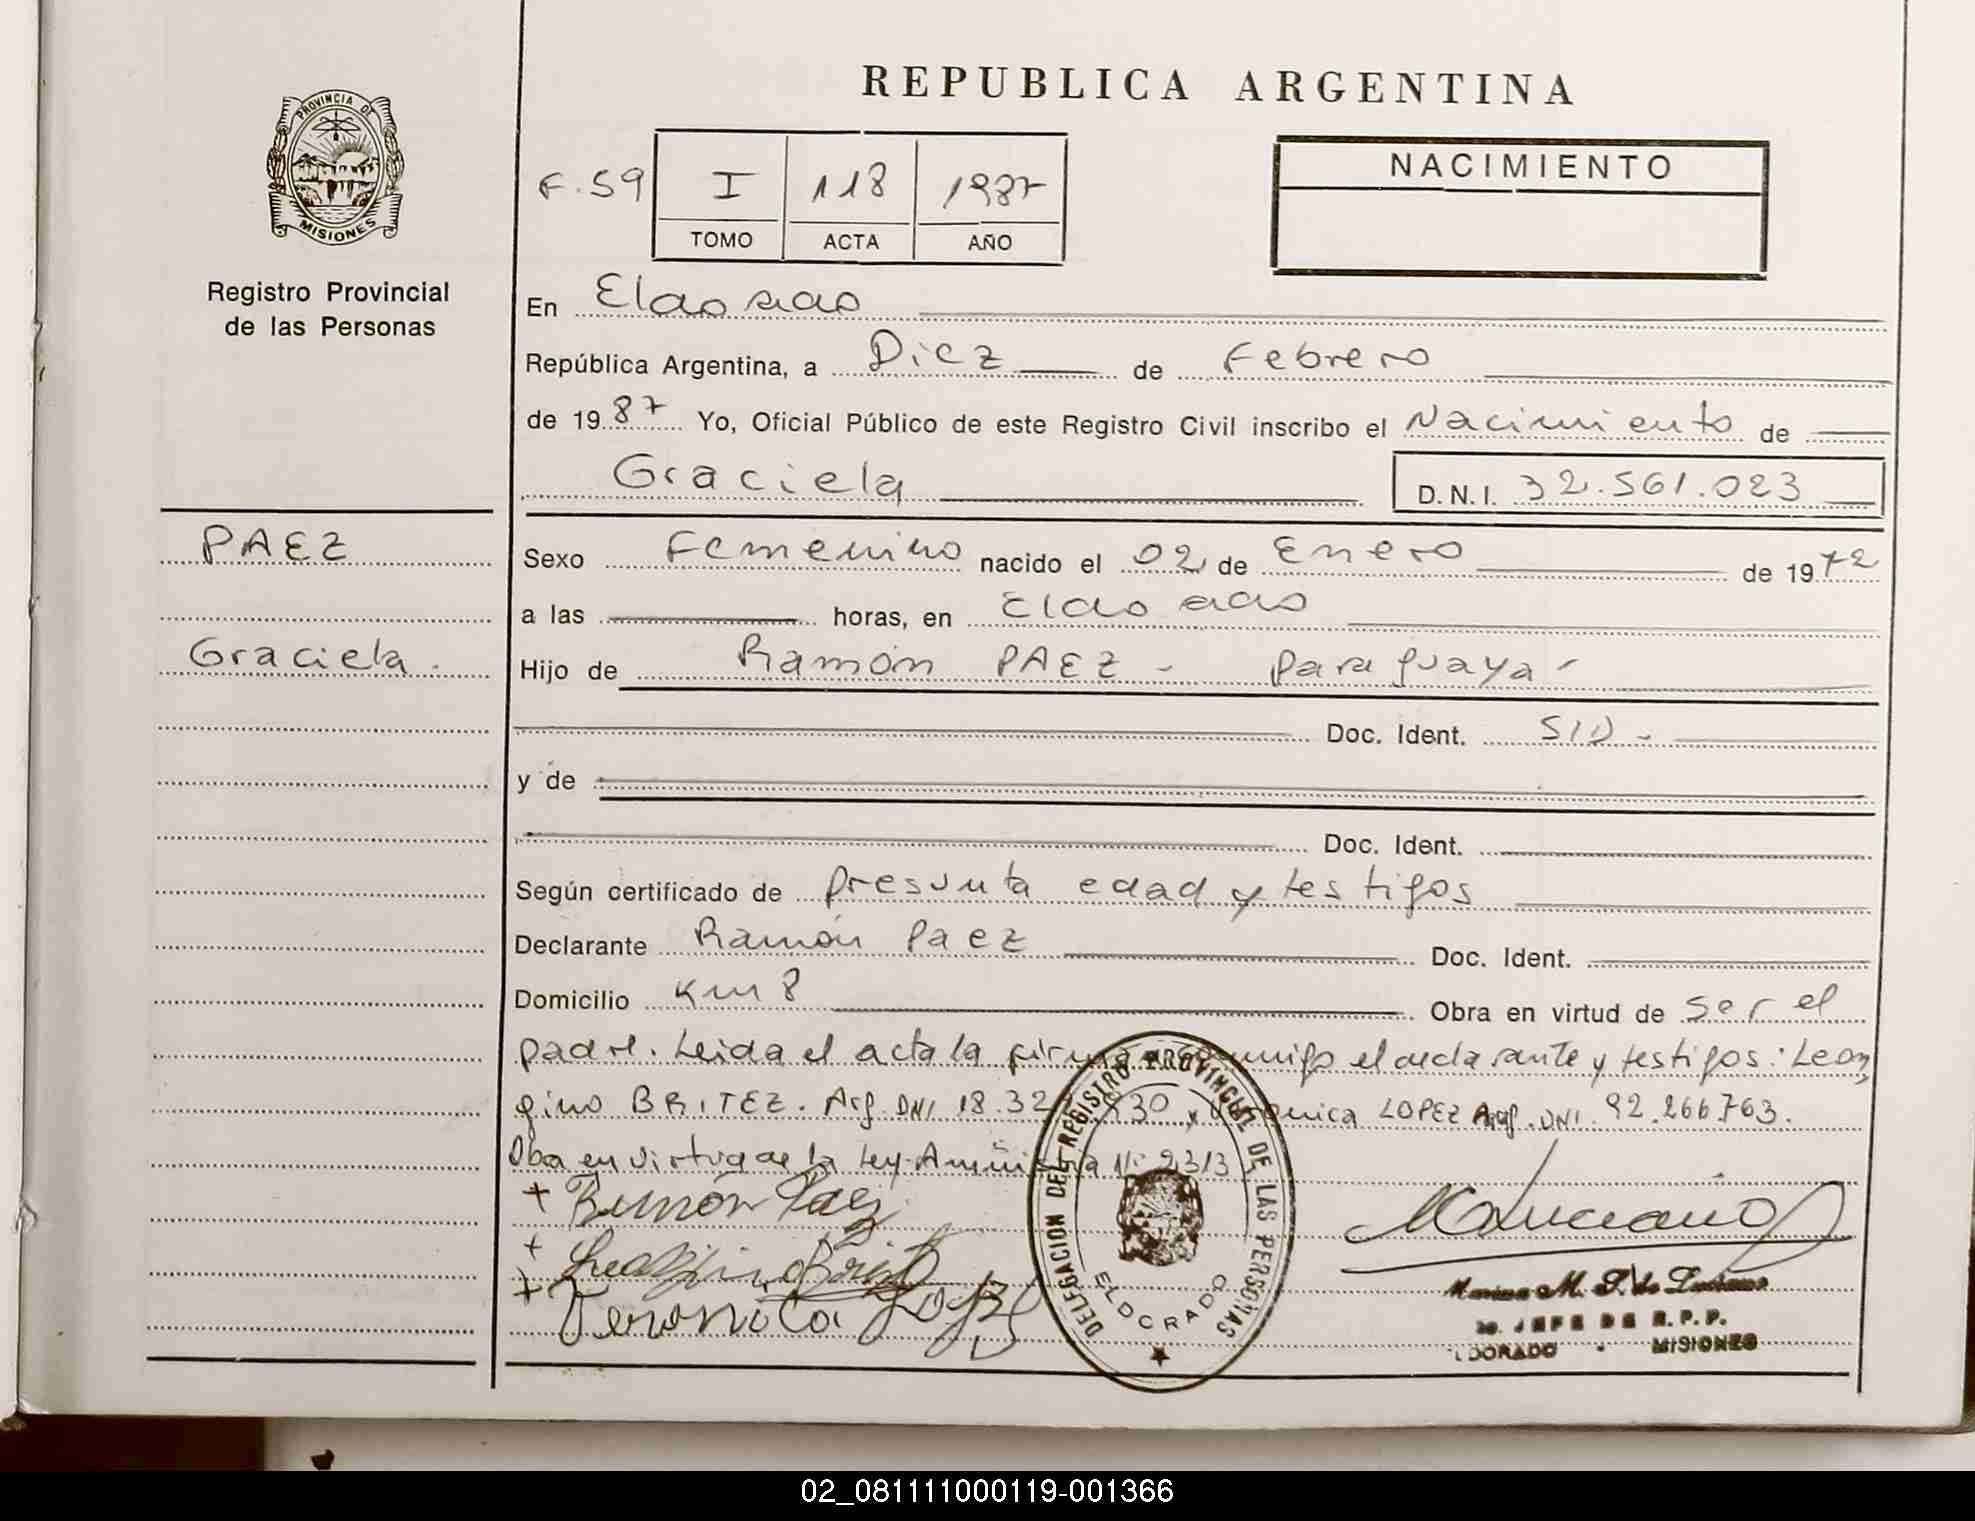 REPUBLICA ARGENTINA
PROVINCIA DE
MISIONES
Registro Provincial
de las Personas
F. 59
I 118 1987
TOMO ACTA AÑO
NACIMIENTO
En Eldorado
República Argentina, a Diez de Febrero
de 1987 Yo, Oficial Público de este Registro Civil inscribo el Nacimiento de
Graciela D.N.I. 32.561.023
PAEZ
Graciela.
Sexo Femenino nacido el 02 de Enero de 1972
a las horas, en Eldorado
Hijo de Ramón PAEZ - Paraguaya -
Doc. Ident. S/D -
y de
Doc. Ident.
Según certificado de presunta edad y testigos
Declarante Ramón Paez Doc. Ident.
Domicilio Km 8 Obra en virtud de ser el
padre. Leida el acta la firma conmigo el declarante y testigos: Leon
gino BRITEZ. Arg. DNI 18.32 830 y Veronica LOPEZ Arg. DNI. 92.266.763.
Oba en virtud de la Ley N° 2313
+ Ramón Paez
+
+ Veronica Lopez
DELEGACION DEL REGISTRO PROVINCIAL DE LAS PERSONAS
ELDORADO
JEFE DE R.P.P.
MISIONES
02_081111000119-001366